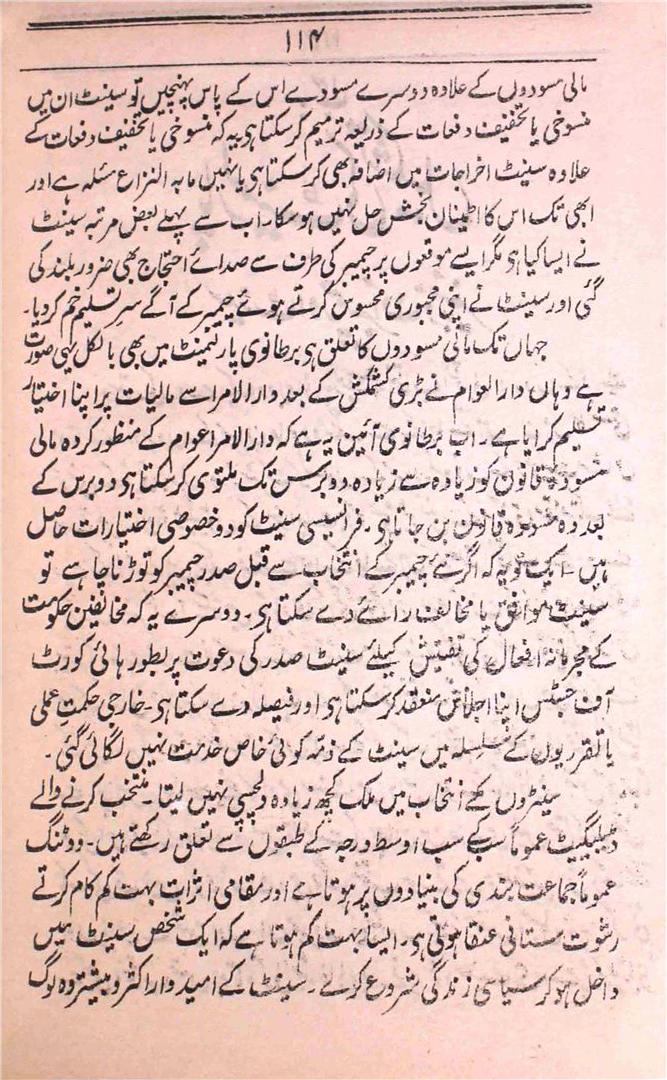 ۱۱۴
مالی مسودوں کے علاوہ دوسرے مسودے اس کے پاس پہنچیں تو سینٹ ان میں
منسوخی یا تخفیف دفعات کے ذریعہ ترمیم کرسکتا ہی یہ کہ منسوخی یا تخفیف دفعات کے
علاوہ سینٹ اخراجات میں اضافہ بھی کرسکتا ہی یا نہیں مابہ النزاع مسئلہ ہے اور
ابھی تک اس کا اطمینان بخش حل نہیں ہوسکا، اب سے پہلے بعض مرتبہ سینٹ
نے ایسا کیا ہو مگر ایسے موقعوں پر چیمبر کی طرف سے صدائے احتجاج بھی ضرور بلند کی
گئی اور سینٹ نے اپنی مجبوری محسوس کرتے ہوئے چیمبر کے آگے سرِ تسلیم خم کردیا۔
جہاں تک مالی مسودوں کا تعلق ہی برطانوی پارلیمنٹ میں بھی بالکل یہی صورت
ہے وہاں دارالعوام نے بڑی کشمکش کے بعد دارالامرا سے مالیات پر اپنا اختیار
تسلیم کرایا ہے۔ اب برطانوی آئین یہ ہے کہ دارالامرا عوام کے منظور کردہ مالی
مسودہ قانون کو زیادہ سے زیادہ دو برس تک ملتوی کرسکتا ہی دو برس کے
بعد وہ مسودہ قانون بن جاتا ہی۔ فرانسیسی سینٹ کو دو خصوصی اختیارات حاصل
ہیں۔ ایک تو یہ کہ اگر نئے چیمبر کے انتخاب سے قبل صدر چیمبر کو توڑنا چاہے تو
سینٹ موافق یا مخالف رائے دے سکتا ہی۔ دوسرے یہ کہ مخالفین حکومت
کے مجرمانہ افعال کی تفتیش کیلئے سینٹ صدر کی دعوت پر بطور ہائی کورٹ
آف جسٹس اپنا اجلاس منعقد کرسکتا ہی اور فیصلہ دے سکتا ہی۔ خارجی حکمت عملی
یا تقرریوں کے سلسلہ میں سینٹ کے ذمہ کوئی خاص خدمت نہیں لگائی گئی۔
سینٹروں کے انتخاب میں ملک کچھ زیادہ دلچسپی نہیں لیتا۔ منتخب کرنے والے
ڈیلیگیٹ عموماً سب کے سب اوسط درجہ کے طبقوں سے تعلق رکھتے ہیں۔ ووٹنگ
عموماً جماعت بندی کی بنیادوں پر ہوتا ہے اور مقامی اثرات بہت کم کام کرتے
رشوت ستانی عنقا ہوتی ہو۔ ایسا بہت کم ہوتا ہے کہ ایک شخص سینٹ میں
داخل ہوکر سیاسی زندگی شروع کرے۔ سینٹ کے امیدوار اکثر و بیشتر وہ لوگ